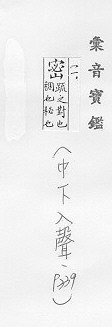 彙音寶鑑
密 疏之對也
稠也秘也
(巾下入聲, P339)